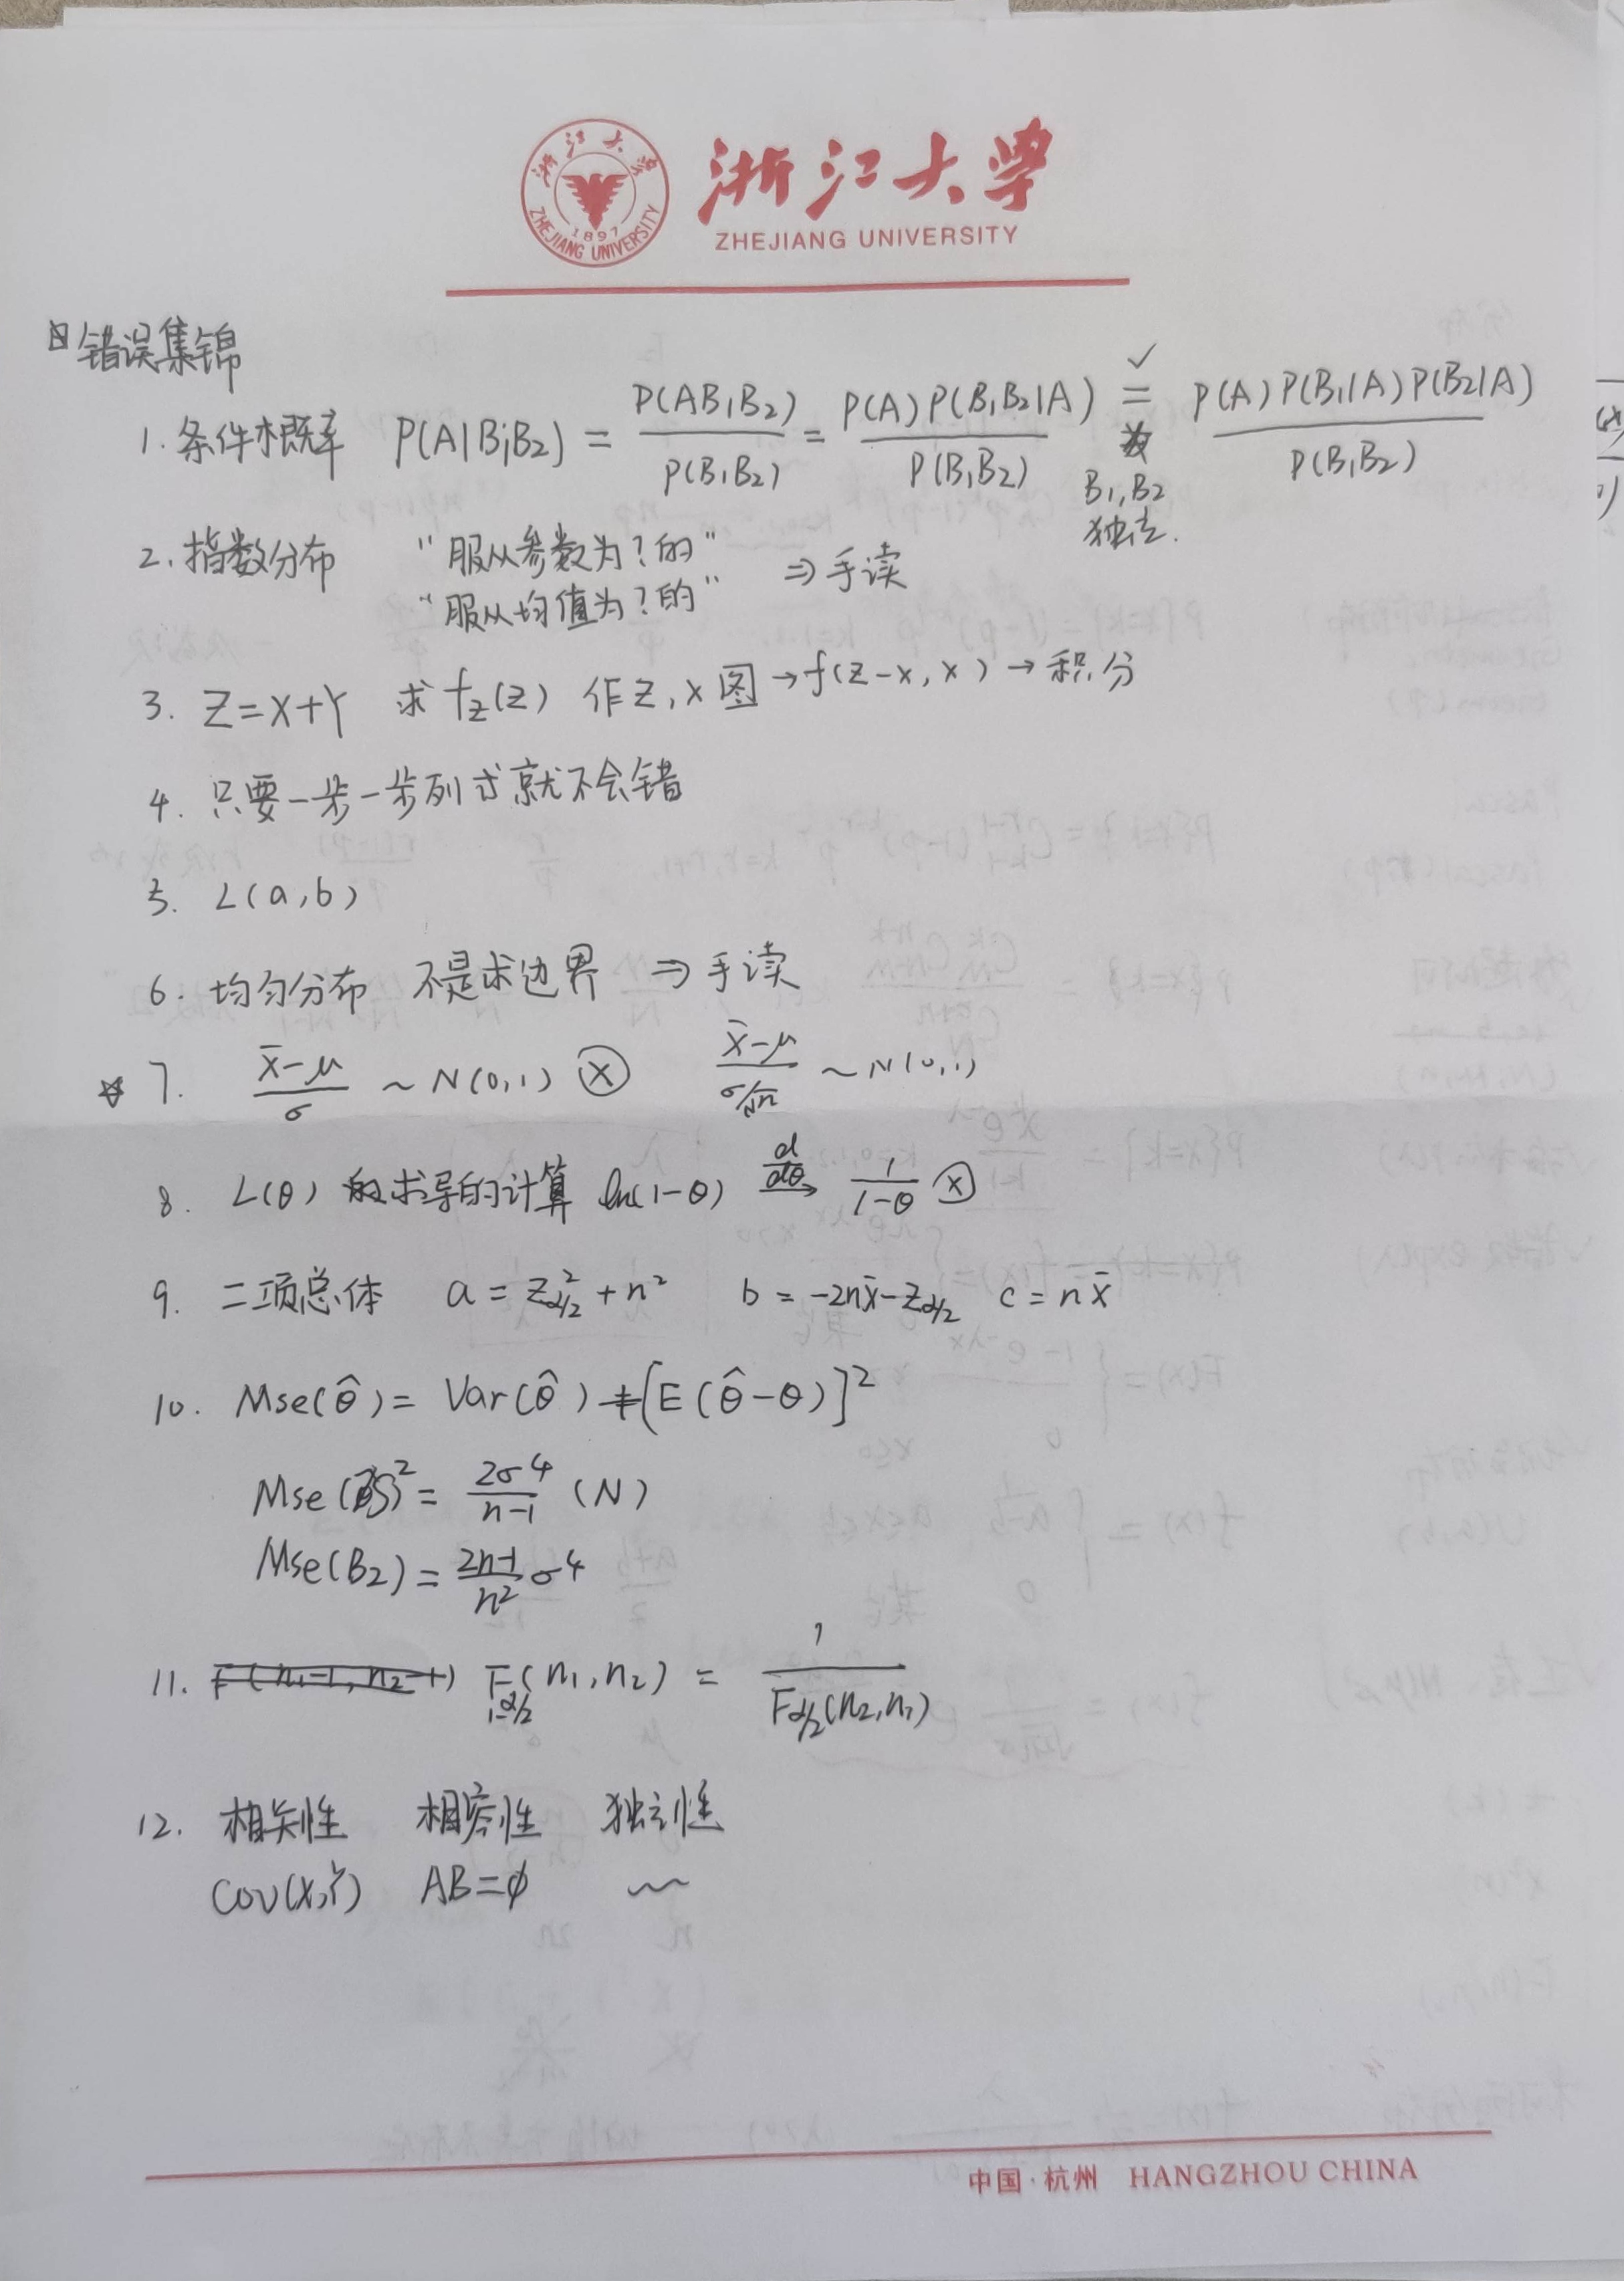 浙江大学
ZHEJIANG UNIVERSITY
浙江大学
ZHEJIANG UNIVERSITY
1897
错误集锦
1. 条件概率 P(A|B₁B₂) = P(AB₁B₂)/P(B₁B₂) = P(A)P(B₁B₂|A)/P(B₁B₂) = P(A)P(B₁|A)P(B₂|A)/P(B₁B₂)
✓
B₁,B₂
独立.
2. 指数分布 "服从参数为?的" ⇒ 手读
"服从均值为?的"
3. Z=X+Y 求 f_Z(z) 作z,x图→f(z-x,x)→积分
4. 只要一步一步列式就不会错
5. L(a,b)
6. 均匀分布 不是求边界 ⇒ 手读
☆ 7. (x̄-μ)/σ ~ N(0,1) ⊗ (x̄-μ)/(σ/√n) ~ N(0,1)
8. L(θ) 求导的计算 ln(1-θ) d/dθ→ 1/(1-θ) ⊗
9. 二项总体 a = z²_{α/2} + n² b = -2nx̄ - z_{α/2} c = nx̄
10. Mse(θ̂) = Var(θ̂) + [E(θ̂-θ)]²
Mse(S)² = 2σ⁴/(n-1) (N)
Mse(B₂) = (2n-1)/n² σ⁴
11. F(n₁-1, n₂-1) F_{1-α/2}(n₁,n₂) = 1/F_{α/2}(n₂,n₁)
12. 相关性 相容性 独立性
Cov(X,Y) AB=∅ ~
中国·杭州 HANGZHOU CHINA